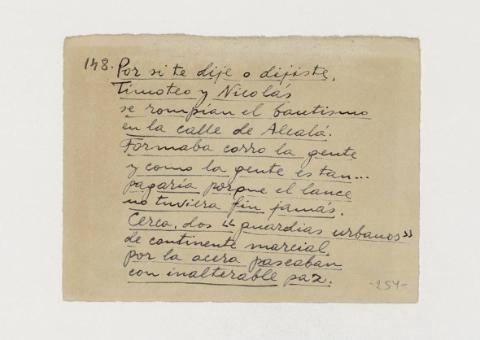 148. Por si te dije o dijiste,
Timoteo y Nicolás
se rompían el bautismo
en la calle de Alcalá.
Formaba corro la gente
y como la gente es tan...
pagaría porque el lance
no tuviera fin jamás.
Cerca, dos "guardias urbanos"
de continente marcial,
por la acera paseaban
con inalterable paz.
-254-